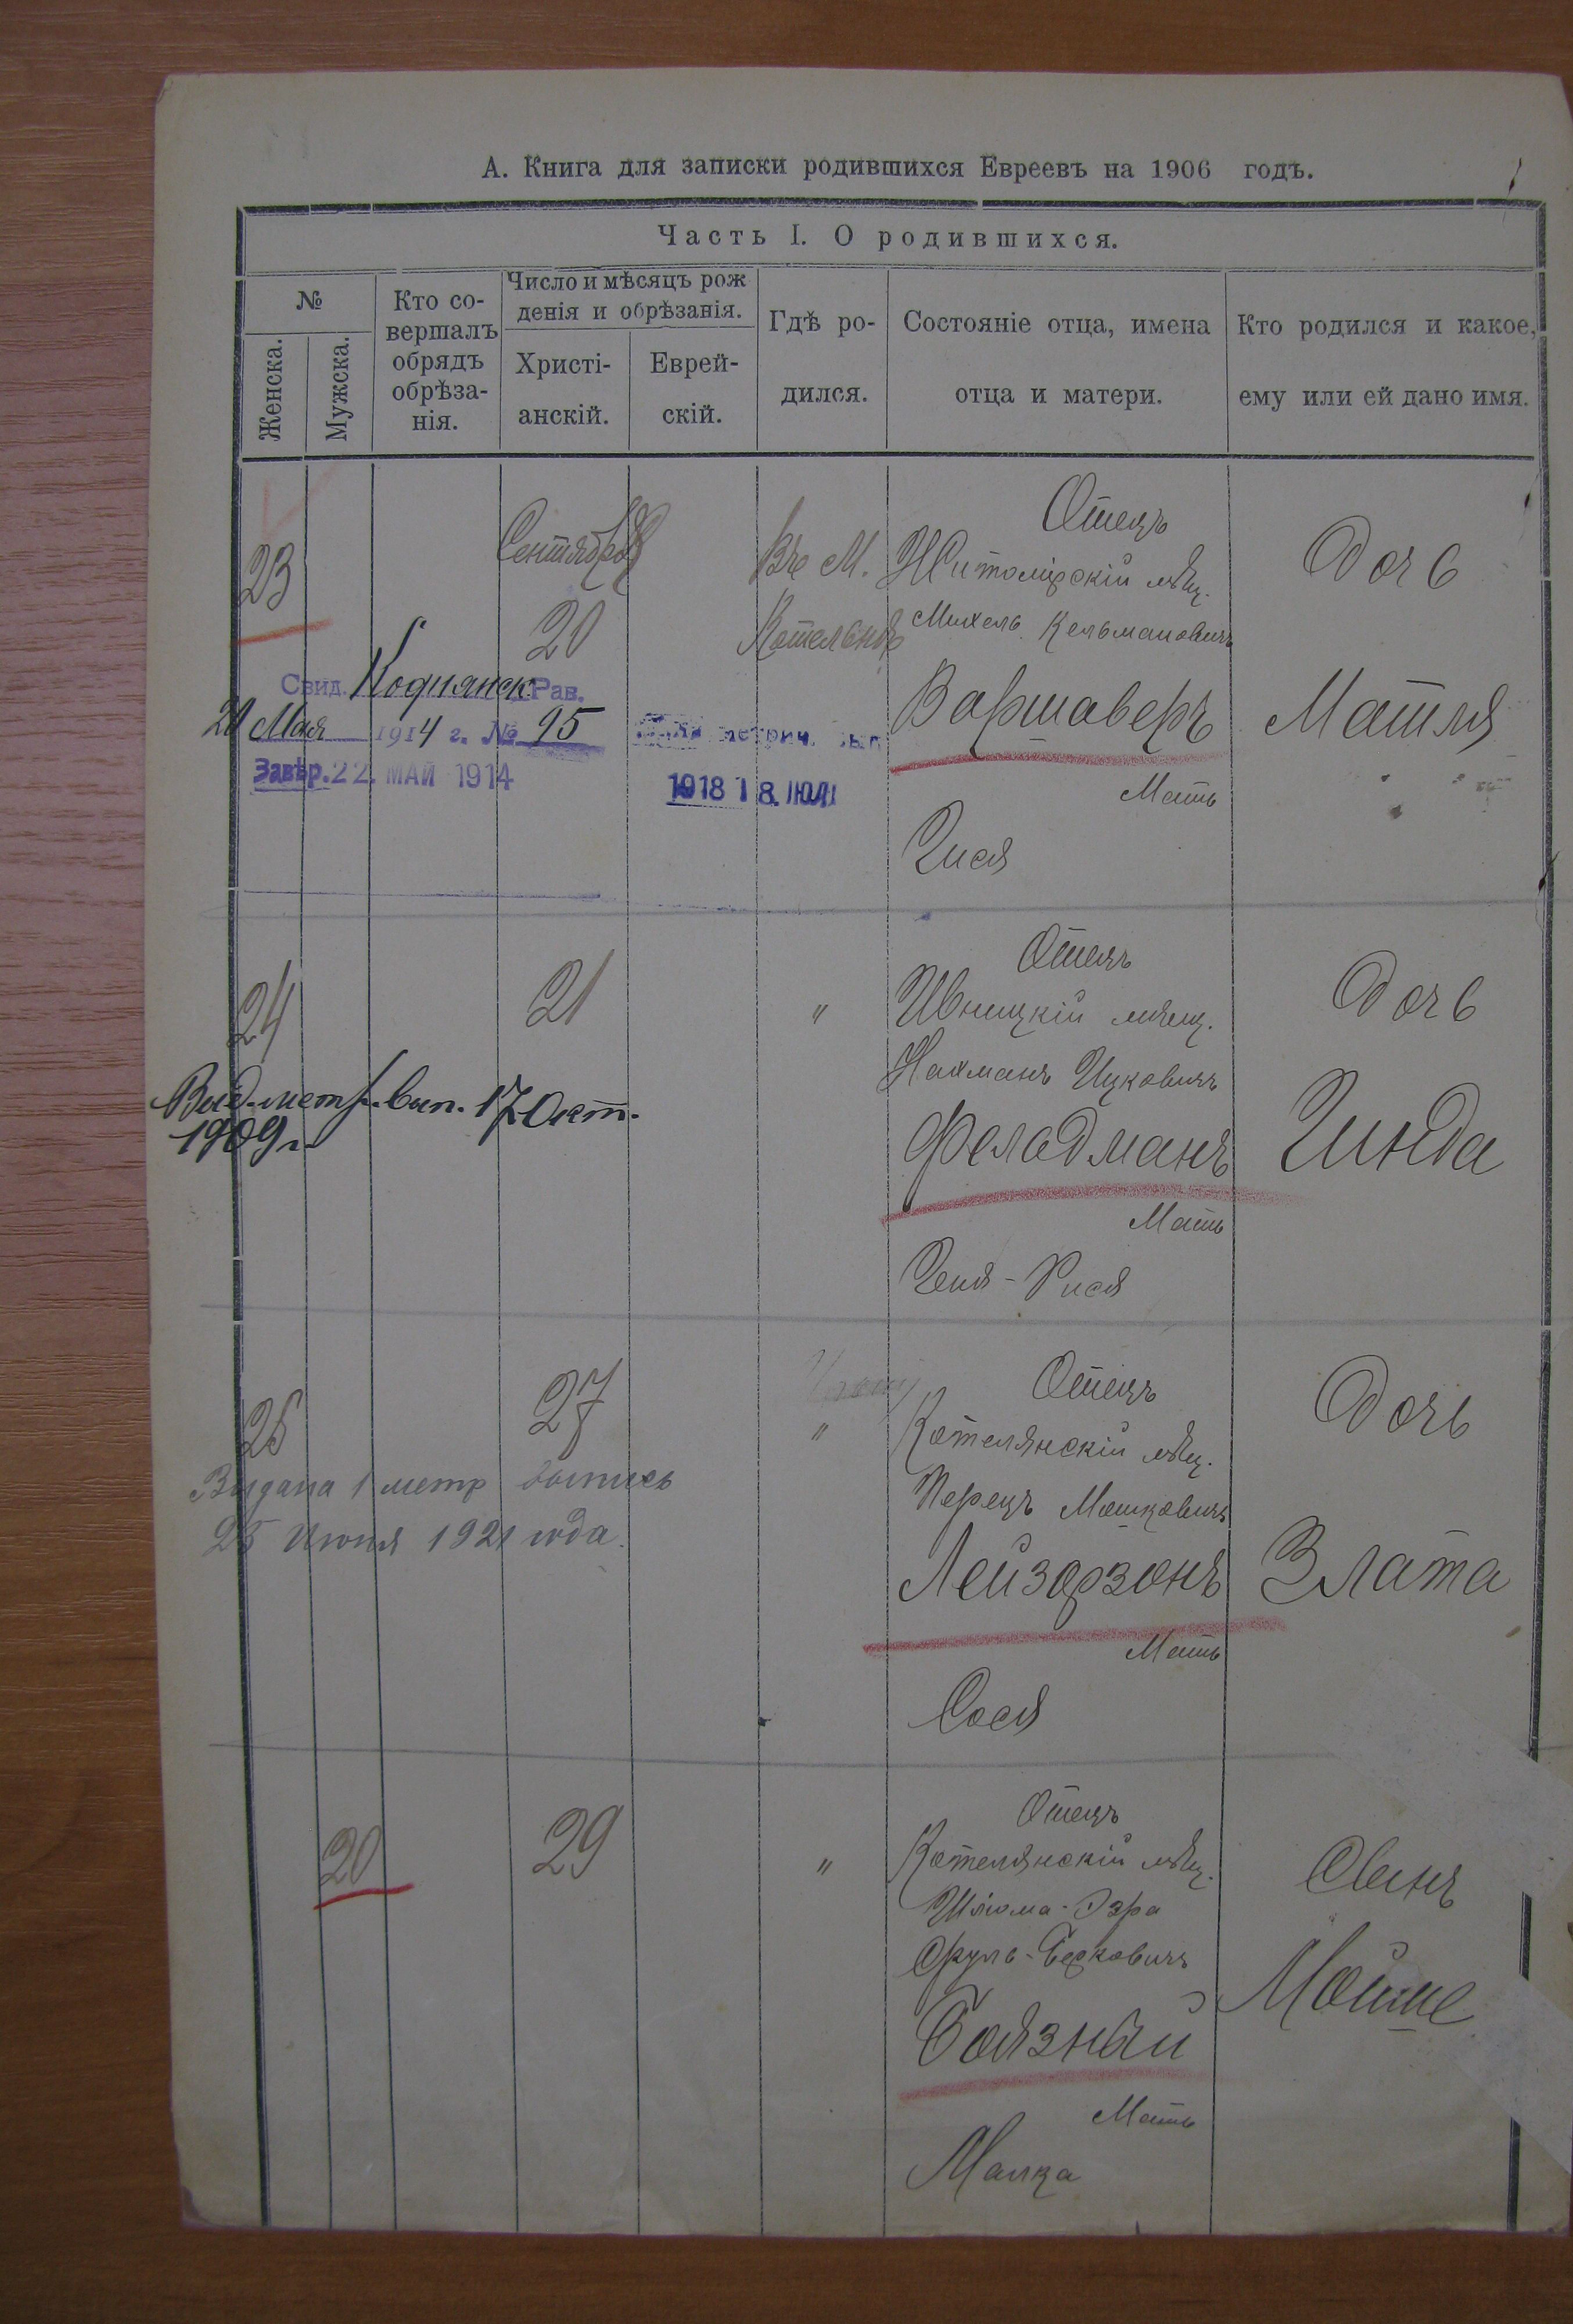 А. Книга для записки родившихся Евреевъ на 1906 годъ.
Часть I. О родившихся.
№
Женска.
Мужска.
Кто со-
вершалъ
обрядъ
обрѣза-
нія.
Число и мѣсяцъ рож
денія и обрѣзанія.
Христі-
анскій.
Еврей-
скій.
Гдѣ ро-
дился.
Состояніе отца, имена
отца и матери.
Кто родился и какое,
ему или ей дано имя.
23
Сентября
20
Въ М.
Котельнѣ
Отецъ
Житомірскій мѣщ.
Михель Кельмановичъ
Варшаверъ
Мать
Дочь
Матля
Свид. Коднянск. Рав.
21 Мая 1914 г. № 95
Завѣр. 22. МАЙ 1914
метрич.
1918 18. ІЮЛ
24
21
"
Отецъ
Ивницкій мѣщ.
Нахманъ Ицковичъ
Фельдманъ
Мать
Геня-Рися
Дочь
Гинда
Выд. метр. вып. 17 Окт.
1909 г.
25
27
"
Отецъ
Котелянскій мѣщ.
Перецъ Мошковичъ
Лейзорзонъ
Мать
Сося
Дочь
Злата
Выдана 1 метр выпись
25 Июня 1921 года.
20
29
"
Отецъ
Котелянскій мѣщ.
Шліома-Эзра
Сруль-Берковичъ
Боязный
Мать
Малка
Сынъ
Мойше